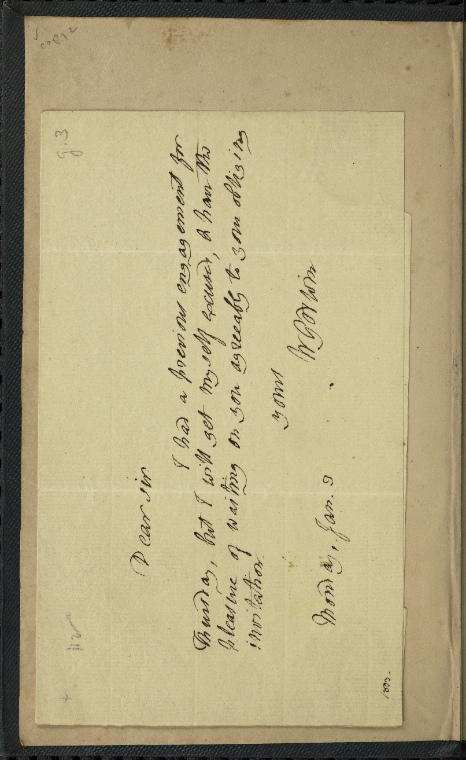 Dear Sir
I had a previous engagement for
Thursday, but I will get myself excused, to have the
pleasure of waiting on you agreeably to your obliging
invitation.
yours
W Godwin
Monday, Jan. 3
g.3